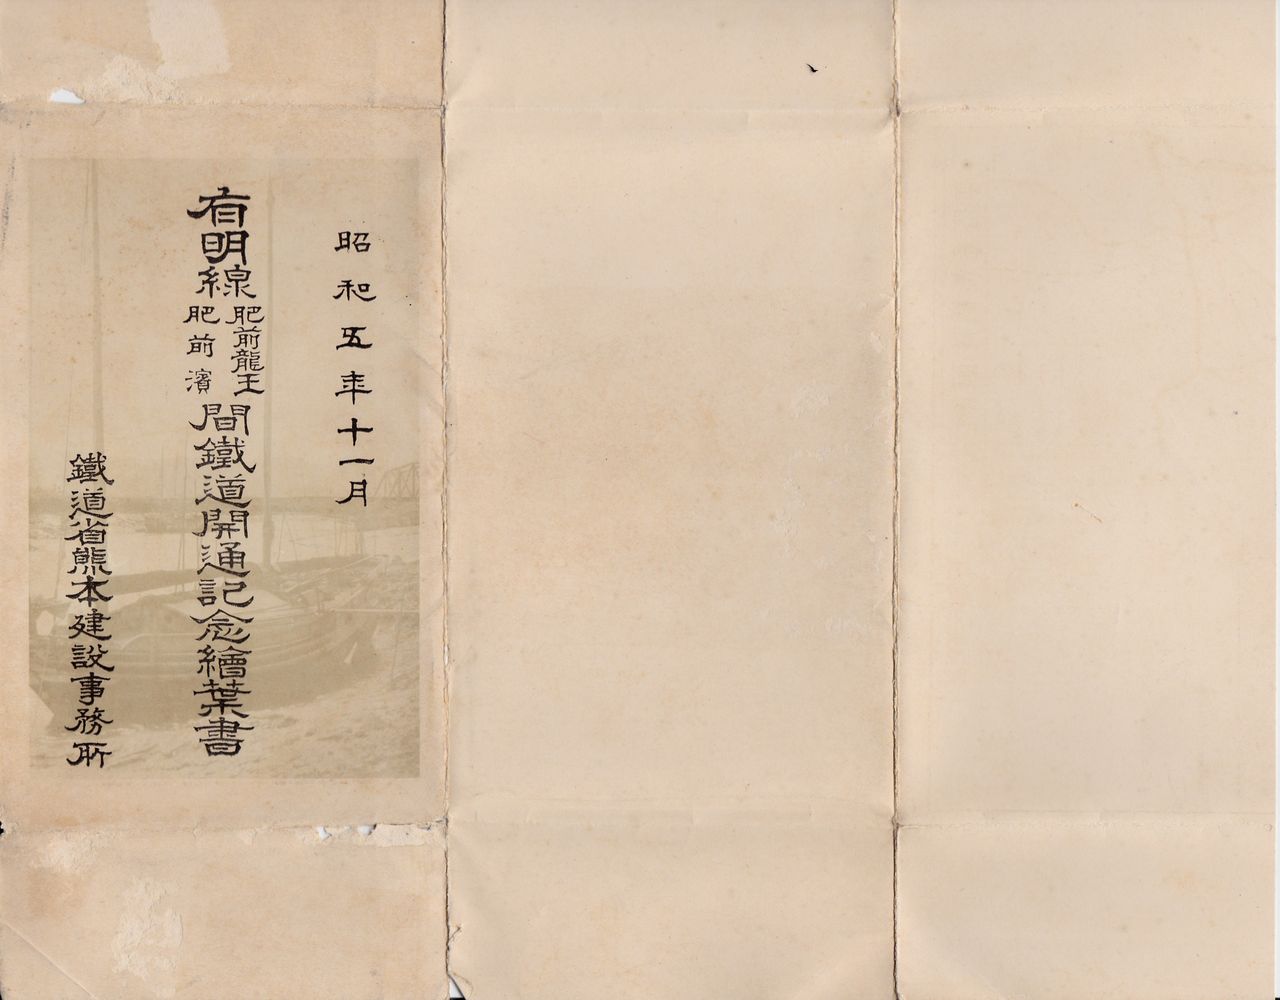 昭和五年十一月
有明線肥前龍王肥前濱間鐵道開通記念繪葉書
鐵道省熊本建設事務所